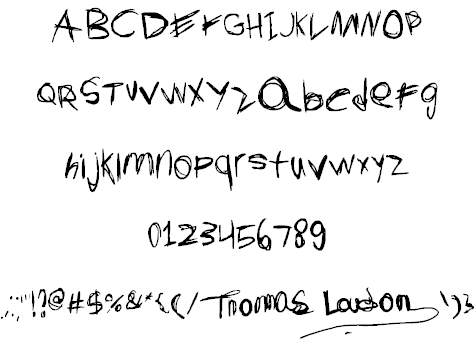 ABCDEFGHIJKLMNOP
QRSTUVWXYZabcdefg
hijklmnopqrstuvwxyz
0123456789
.,:;'"!?@#$%&*{(/Thomas Loudon\)}